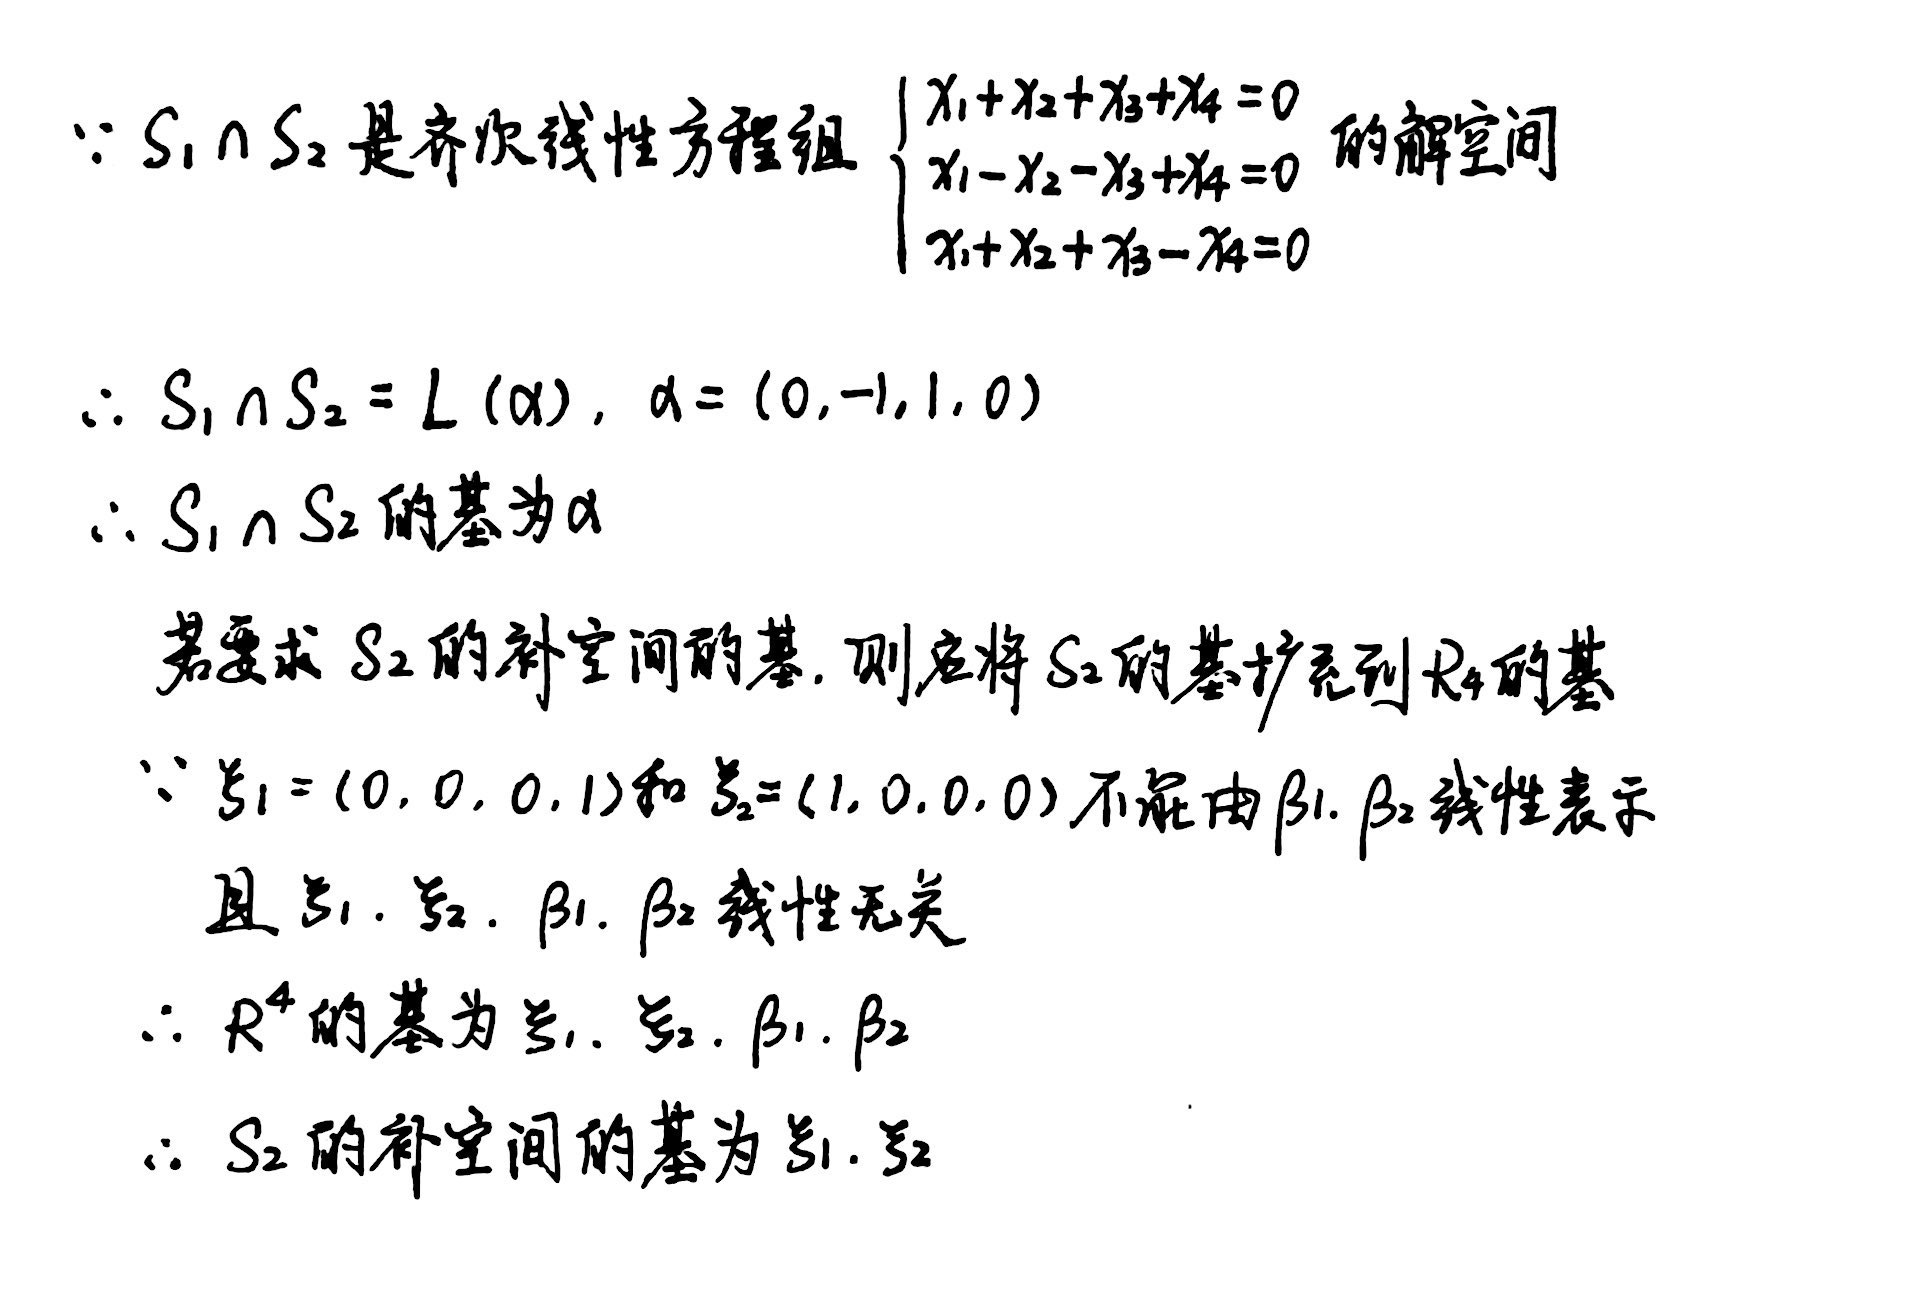 ∵ S₁∩S₂是齐次线性方程组 { x₁+x₂+x₃+x₄=0 的解空间
x₁-x₂-x₃+x₄=0
x₁+x₂+x₃-x₄=0
∴ S₁∩S₂=L(α), α=(0,-1,1,0)
∴ S₁∩S₂的基为α
若要求S₂的补空间的基.则应将S₂的基扩充到R₄的基
∵ ξ₁=(0,0,0,1)和ξ₂=(1,0,0,0)不能由β₁.β₂线性表示
且ξ₁.ξ₂.β₁.β₂线性无关
∴ R⁴的基为ξ₁.ξ₂.β₁.β₂
∴ S₂的补空间的基为ξ₁.ξ₂